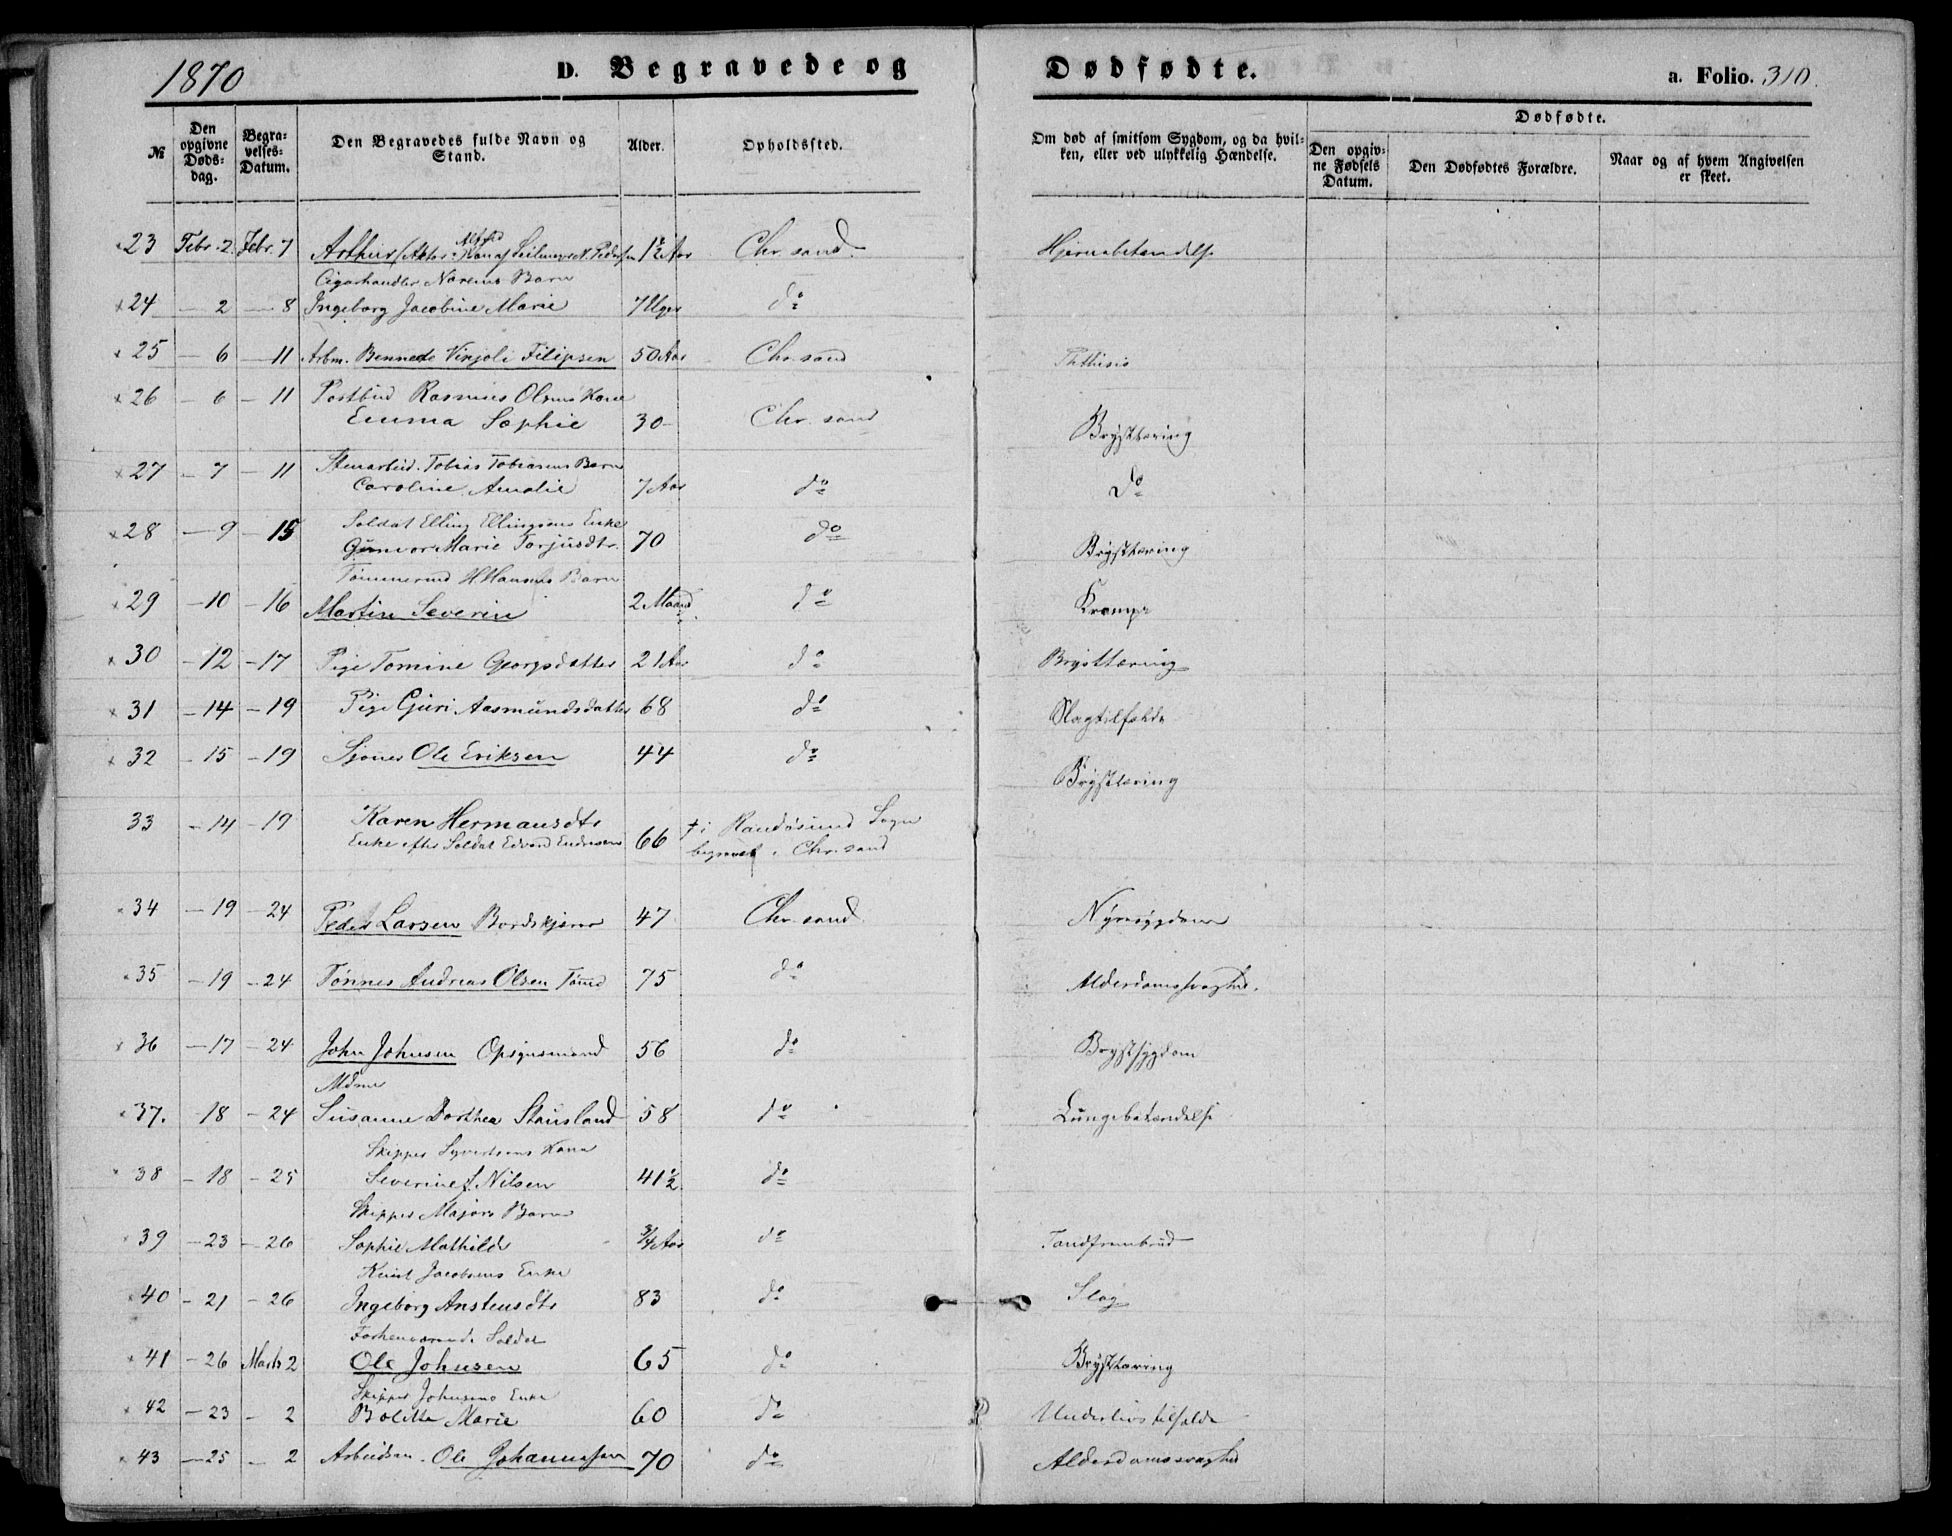 1870 D. Begravede og Dødfødte. a. Folio. 310.
№ Den opgivne Døds-dag. Begra-velses-Datum. Den Begravedes fulde Navn og Stand. Alder. Opholdssted. Om død af smitsom Sygdom, og da hvil-ken, eller ved ulykkelig Hændelse. Dødfødte. Den opgiv-ne Fødsels Datum. Den Dødfødtes Forældre. Naar og af hvem Angivelsen er skeet.
23 Febr. 2 Febr. 7 Arthur 1½ Aar Chr.sand Hjernebetændelse
Cigarhandler Barn
24 – 2 – 8 Ingeborg Jacobine Marie 7 Uger do
25 – 6 – 11 Arbm. Filipsen 50 Aar Chr.sand Phthisis
26 – 6 – 11 Postbud Rasmus Olsens Kone
Emma Sophie 30 Chr.sand Brysttæring
27 – 7 – 11 Stenarbeid. Tobias Tobiasens Barn
Caroline Amalie 7 Aar do do
28 – 9 – 15 Soldat Elling Ellingsens Enke
Gunvor Marie Torjusdtr. 70 do Brysttæring
Tømmermd H. Hansens Barn
29 – 10 – 16 Martin Severin 2 Maand. do Krampe
30 – 12 – 17 Pige Tomine Georgsdatter 21 Aar do Brysttæring
31 – 14 – 19 Pige Guri Aasmundsdatter 68 do Slagtilfælde
32 – 15 – 19 Ole Eriksen 44 do Brysttæring
33 – 14 – 19 Karen Hermansdtr
Enke efter Soldat Edvard Endresen 66 † i Randøsund Sogn
begravet i Chr.sand
34 – 19 – 24 Peder Larsen Bordskjærer 47 Chr.sand Nyresygdom
35 – 19 – 24 Tønnes Andreas Olsen Tømd 75 do Alderdomssvaghed.
36 – 17 – 24 John Johnsen Opsynsmand 56 do Brystsygdom
Mdme
37. 18 – 24 Susanne Dorthea Stausland 58 do Lungebetændelse
Skipper Syvertsens Kone
38 – 18 – 25 Severine f. Nilsen 41½ do
Skipper Majors Barn
39 – 23 – 26 Sophie Mathilde ¾ Aar do Tandfrembrud
Knud Jacobsens Enke
40 – 21 – 26 Ingeborg Anstensdtr 83 do Slag
Forhenværende Soldat
41 – 26 Marts 2 Ole Johnsen 65 do Brysttæring
Skipper Johnsens Enke
42 – 23 – 2 Bolette Marie 60 do Underlivstilfælde
43 – 25 – 2 Arbeidsm. Ole Johannessen 70 do Alderdomssvaghed